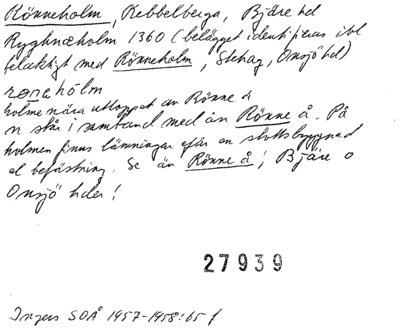 Rönneholm, Rebbelberga, Bjäre hd
Ryghnæholm 1360 (belägget identifieras ibl
felaktigt med Rönneholm, Stehag, Onsjö hd)
rønahólm
holme nära utloppet av Rönne å
n står i samband med ån Rönne å. På
holmen finns lämningar efter en slottsbyggnad
el befästning. Se än Rönne å, Bjäre o
Onsjö hder!
27939
Ingers SOÅ 1957-1958:65 f